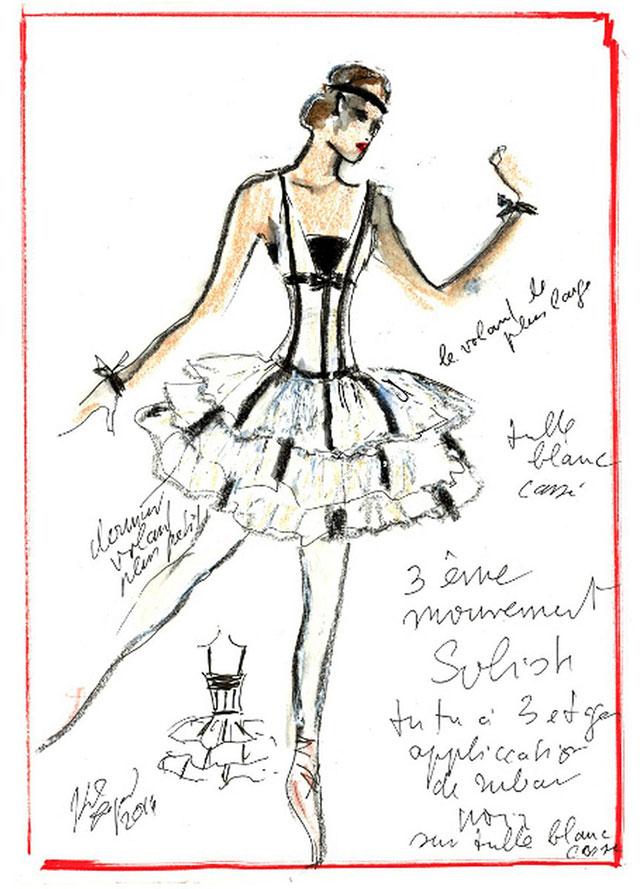 le volant le
plus large
tulle
blanc
cassé
dernier
volant
plus petit
3 ème
mouvement
Solist
tutu à 3 etages
appliccation
de ruban
noir
sur tulle blanc
cassé
2014